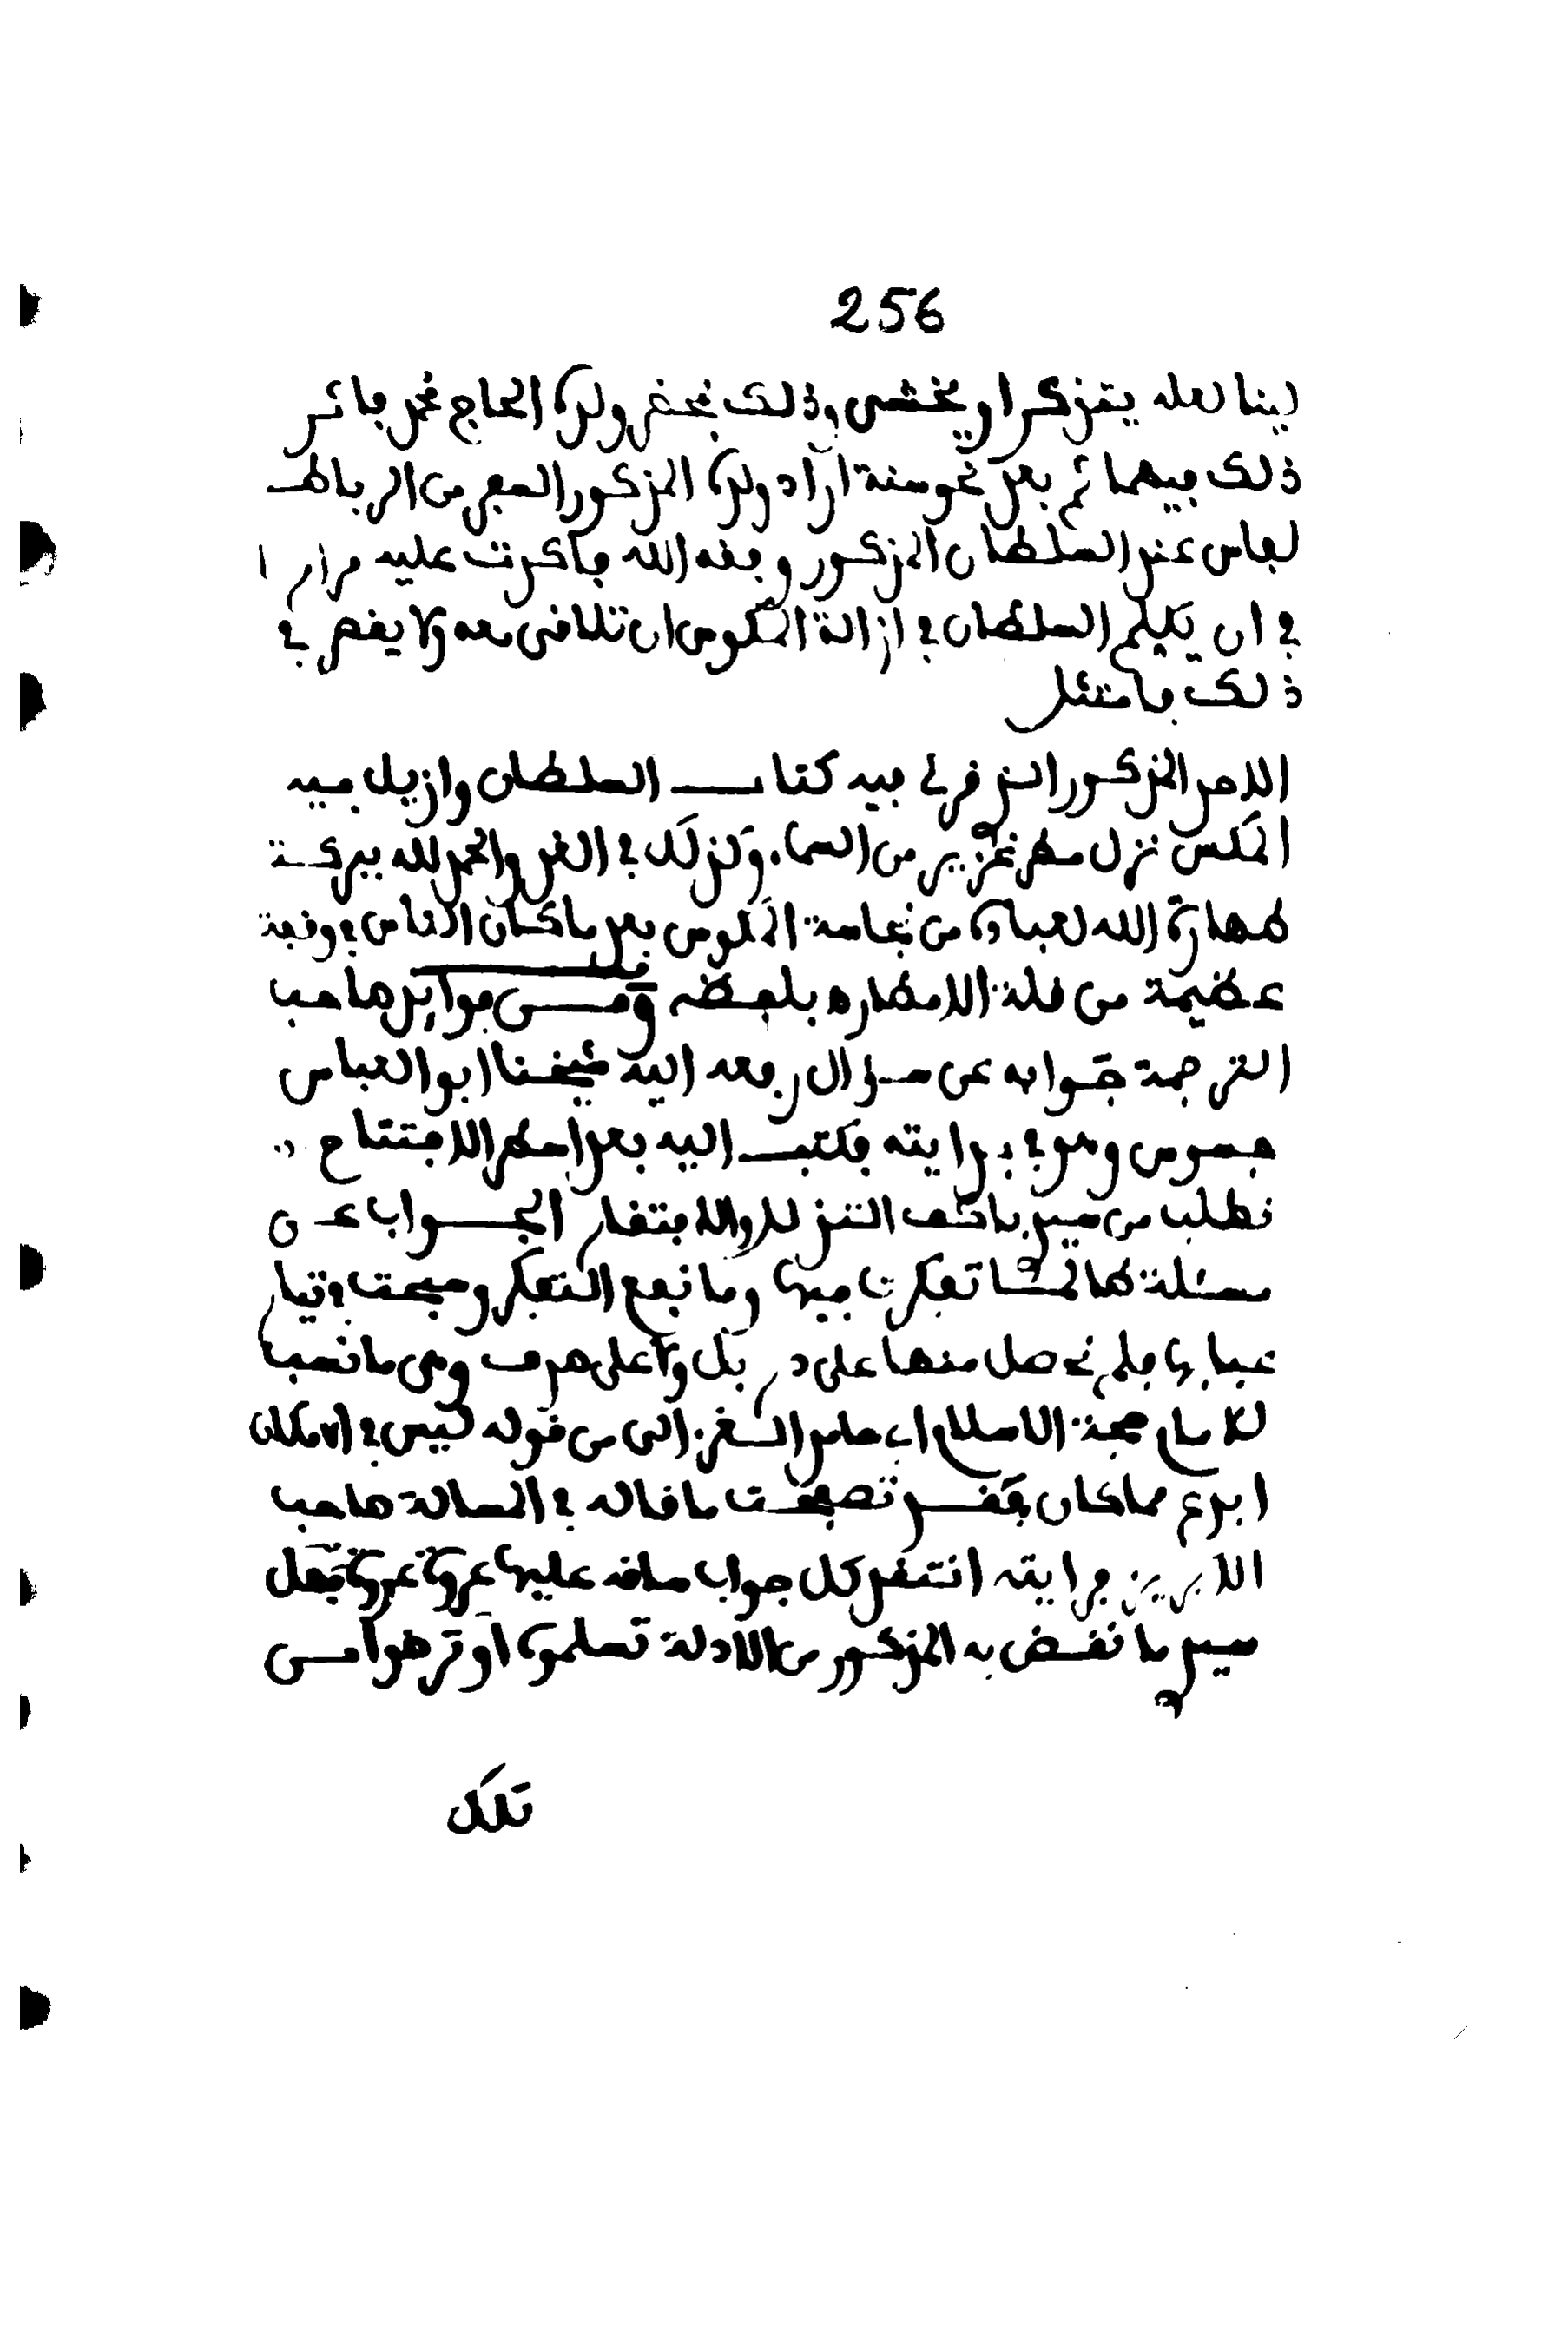 256
لينا لعله يتذكر او يخشى وذلك بمحضر ولده الحاج محمد فاثر
ذلك فيهما ثم بعد نحو سنة اراد ولده المذكور السفر من الرباط
لفاس عند السلطان المذكور وفقه الله فاكدت عليه مرارا
في ان يكلم السلطان في ازالة المكوس ان تلاقى معه ولا يقصر في
ذلك فامتثل
الامر المذكور اليوم الذي قرئ فيه كتاب السلطان وازيل فيه
المكس نزل مطر غزير من السماء وكذلك في الغد والحمد لله ببركة
طهارة الله لعباده من نجاسة المكوس بعد ما كان الناس في وقفة
عظيمة من قلة الامطار ه بلفظه ومن فوائد صاحب
الترجمة جوابه عن سؤال رفعه اليه شيخنا ابو العباس
جسوس وهو في بدايته فكتب اليه بعد اسطر الافتتاح
نطلب من سيدي باكف التذلل والافتقار الجواب عن
مسئلة طالما تفكرنا فيها وما نفع التفكر وسبحت في تيار
عبابها فلم نحصل منها على در بل ولا على صدف وهي ما نسب
للامام حجة الاسلام ابي حامد الغزالي من قوله ليس في الامكان
ابدع مما كان فقد تصفحت ما قاله في المسالة صاحب
الابريز فرايته انتقد كل جواب ساقه عليها عروة عروة فهل
سيدي ما نقض به المذكور من الادلة تسلموه او ترضوا من
تلك